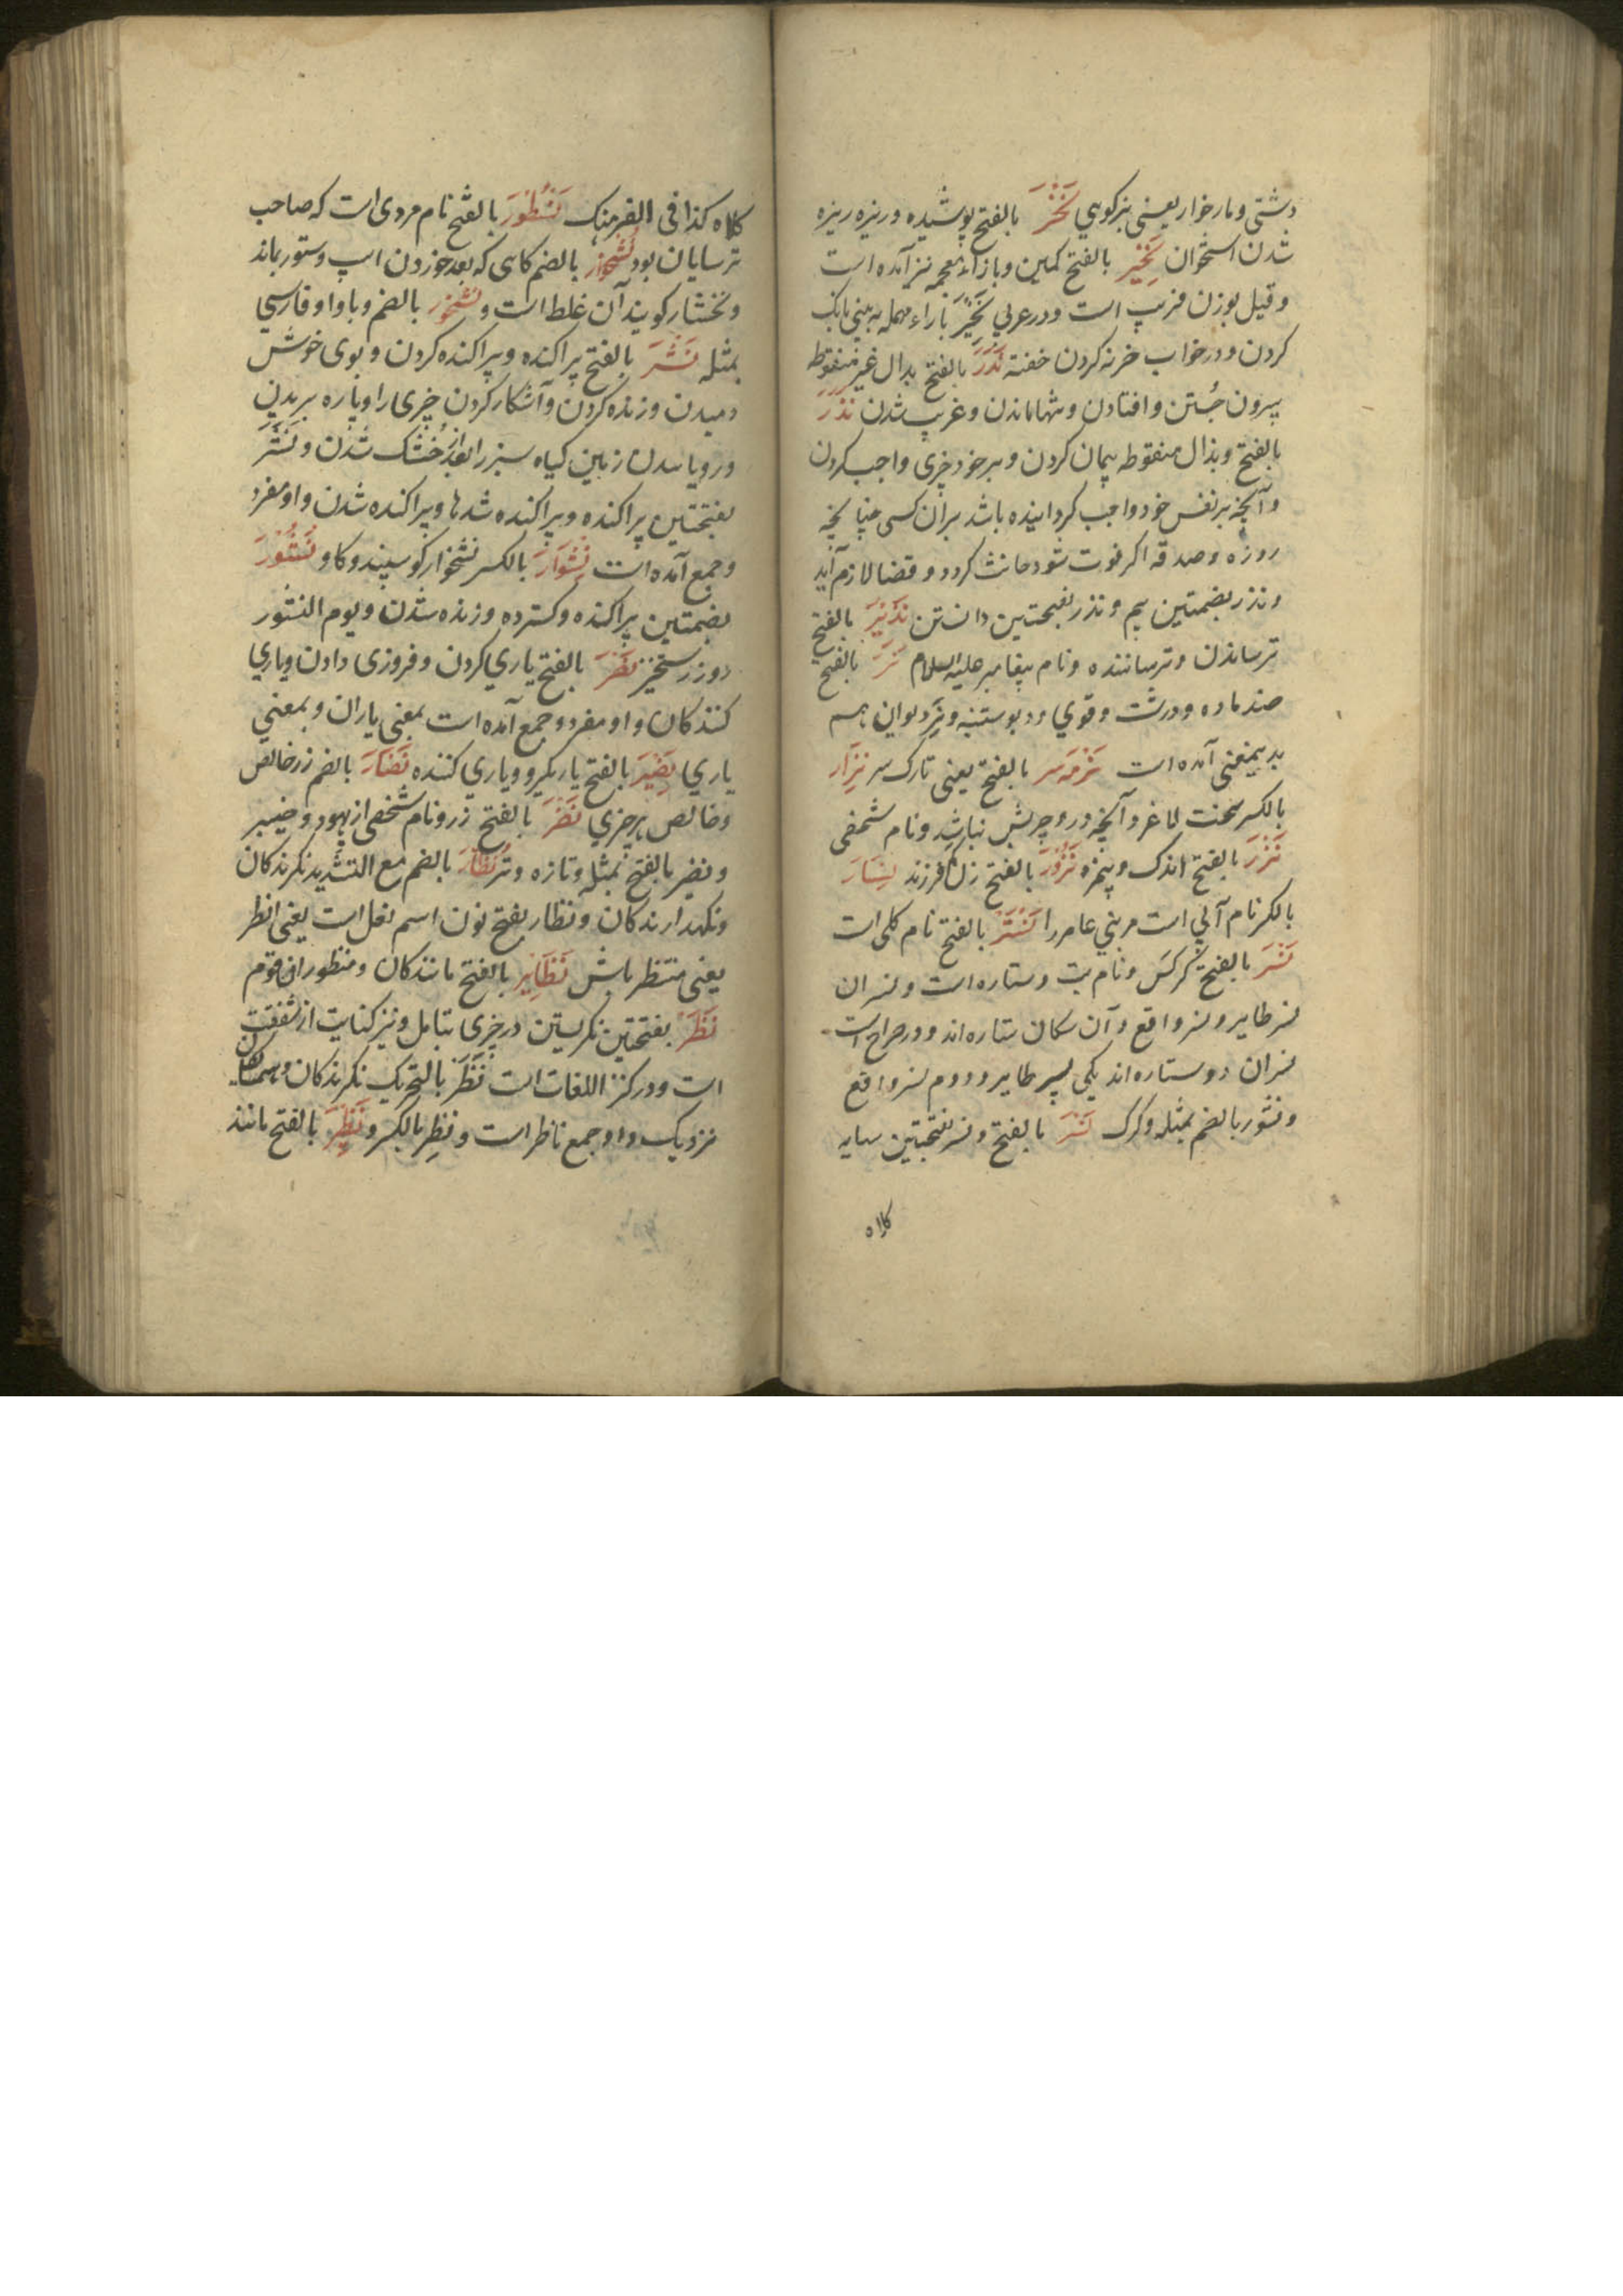 دشتی و مار خوار یعنی بز کوهی نَخَرَ بالفتح پوشیده و ریزه ریزه
شدن استخوان نَخِیَر بالفتح کمین و بازاء معجمه نیز آمده است
و قیل بوزن فریب است و در عربی نَخِیَر باراء مهمله به بینی بانک
کردن و در خواب خرنه کردن خفته نَدَرَ بالفتح بدال غیر منقوطه
بیرون جُستن و افتادن و تنها ماندن و غریب شدن نَذَرَ
بالفتح و بذال منقوطه پیمان کردن و بر خود چیزی واجب کردن
و آنچه بر نفس خود واجب کردانیده باشد بران کسی چنانچه
روزه و صدقه اکر فوت شود حانث کردد و قضا لازم آید
و نذر بضمتین بیم و نذر بفتحتین دانستن نَذِیَر بالفتح
ترساندن و ترساننده و نام پیغامبر علیه السلام نَرَ بالفتح
ضد ماده و درشت و قوی و دیوانِ هم
بدیمعنی آمده است نزمه سر بالفتح یعنی تارک سر نِزَار
بالکسر سخت لاغر و آنچه درو چربش نباشد و نام شخصی
نَزَرَ بالفتح اندک و نَزُوَرَ بالفتح زن کم فرزند نِسَارَ
بالکسر نام آبی است مر بنی عامر را نَسْتَرَ بالفتح نام کلی است
نَسَرَ بالفتح کرکس و نام بت و ستاره است و نسران
نسر طایر و نسر واقع و آن ستاره اند و در صراح است
نسران دو ستاره اند یکی نسر طایر و دوم نسر واقع
و نسور بالضم بمثله و کرک نَسَرَ بالفتح و نسر بفتحتین سایه
کلاه
کلاه کذا فی الفرهنک نَسْطُوَرَ بالفتح نام مردی است که صاحب
ترسایان بود نُشْخوار بالضم کاهی که بعد خوردن اسپ و ستور بماند
و نخشار کویند آن غلط است و نشخور بالضم و با واو فارسی
بمثله نَشَرَ بالفتح پراکنده و پراکنده کردن و بوی خوش
دمیدن و زنده کردن و آشکار کردن چیزی را و پاره بریدن
و رویاندن زمین کیاه سبز را بعد از خُشک شدن و نَشَر
بفتحتین پراکنده و پراکنده شدها و پراکنده شدن و او مفرد
و جمع آمده است نِشْوَارَ بالکسر نشخوار کوسپند و کاو نُشُوَرَ
بضمتین پراکنده و کسترده و زنده شدن و یوم النشور
روز رستخیز نَصَرَ بالفتح یاری کردن و فروزی دادن و یاری
کنندکان و او مفرد و جمع آمده است بمعنی یاران و بمعنی
یاری نَصِیَر بالفتح یاریکر و یاری کننده نُضَارَ بالضم زر خالص
و خالص هر چیزی نَضَرَ بالفتح زر و نام شخصی از یهود و خیبر
و نضیر بالفتح بمثله و تازه و تر نُظّارَ بالضم مع التشدید نکرندکان
و نکهدارندکان و نظار بفتح نون اسم فعل است یعنی انظر
یعنی منتظر باش نَظَایِر بالفتح مانندکان و منظوران قوم
نَظَرَ بفتحتین نکریستن در چیزی بتامل و نیز کنایت از شفقت
است و در کنز اللغات است نَظَرَ بالتحریک نکرندکان و همسایکان
نزدیک و او جمع ناظر است و نظِر بالکسر و نَظِیَر بالفتح مانند